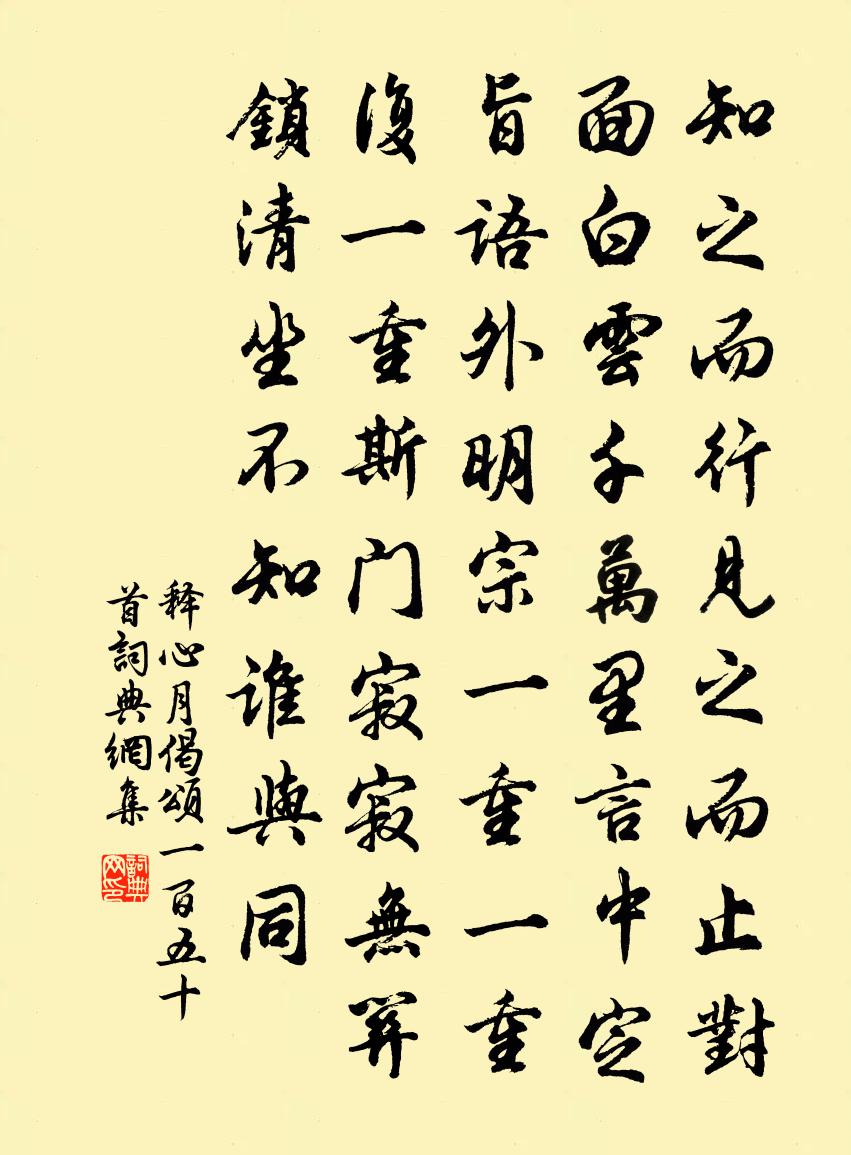 知之而行見之而止對
面白雲千萬里言中定
旨語外明宗一重一重
復一重斯门寂寂無関
鎖清坐不知誰與同
释心月偈頌一百五十
首詞典網集
詞典网印